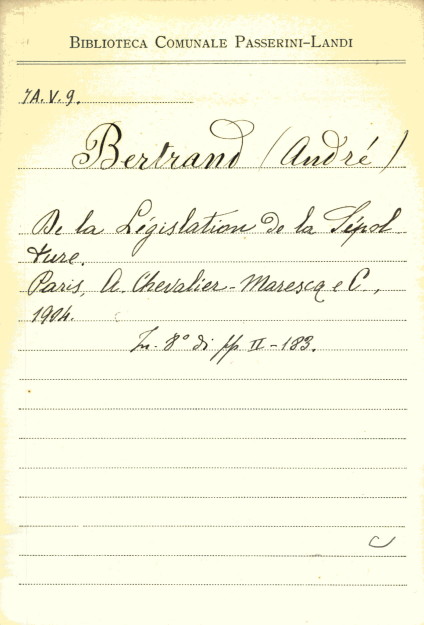 BIBLIOTECA COMUNALE PASSERINI-LANDI
7A.V.9.
Bertrand (André)
De la Législation de la Sépol
ture.
Paris, A. Chevalier-Marescq e C.,
1904.
In-8° di pp II-183.